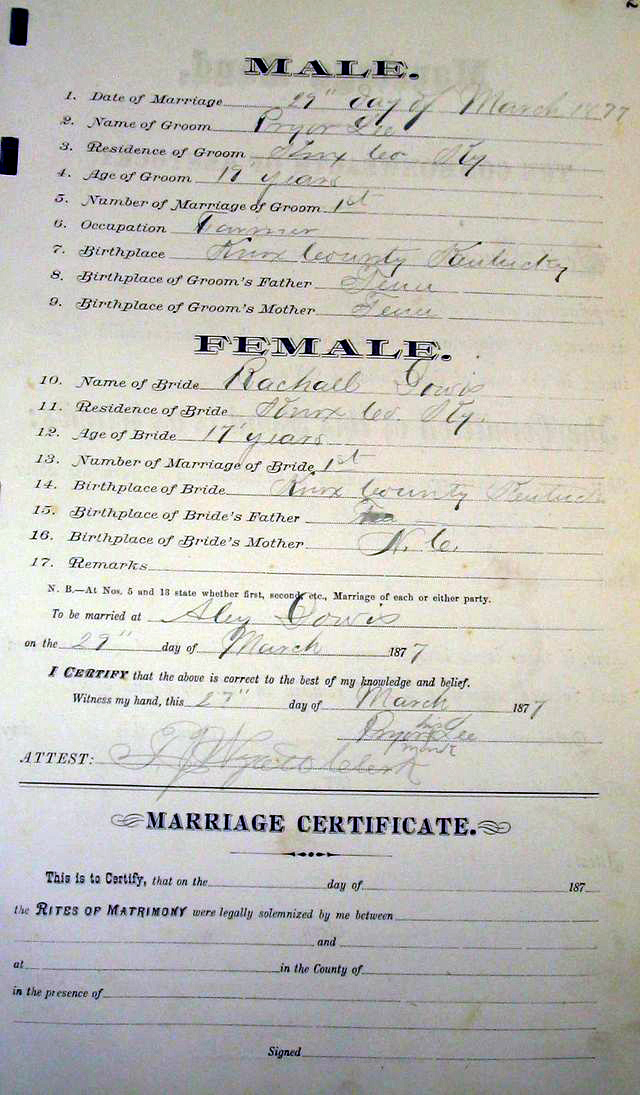 MALE.
1. Date of Marriage 29" day of March 1877
2. Name of Groom Pryor Lee
3. Residence of Groom Knox Co. Ky
4. Age of Groom 19 years
5. Number of Marriage of Groom 1st
6. Occupation Farmer
7. Birthplace Knox County Kentucky
8. Birthplace of Groom's Father Tenn
9. Birthplace of Groom's Mother Tenn
FEMALE.
10. Name of Bride Rachael Dowis
11. Residence of Bride Knox Co. Ky.
12. Age of Bride 17 years
13. Number of Marriage of Bride 1st
14. Birthplace of Bride Knox County Kentucky
15. Birthplace of Bride's Father
16. Birthplace of Bride's Mother N. C.
17. Remarks
N. B.—At Nos. 5 and 13 state whether first, second, etc., Marriage of each or either party.
To be married at Aley Dowis
on the 29" day of March 1877
I CERTIFY that the above is correct to the best of my knowledge and belief.
Witness my hand, this 27" day of March 1877
his
Pryor Lee
mark
ATTEST: Clerk
MARRIAGE CERTIFICATE.
This is to Certify, that on the day of 187
the RITES OF MATRIMONY were legally solemnized by me between
and
at in the County of
in the presence of
Signed